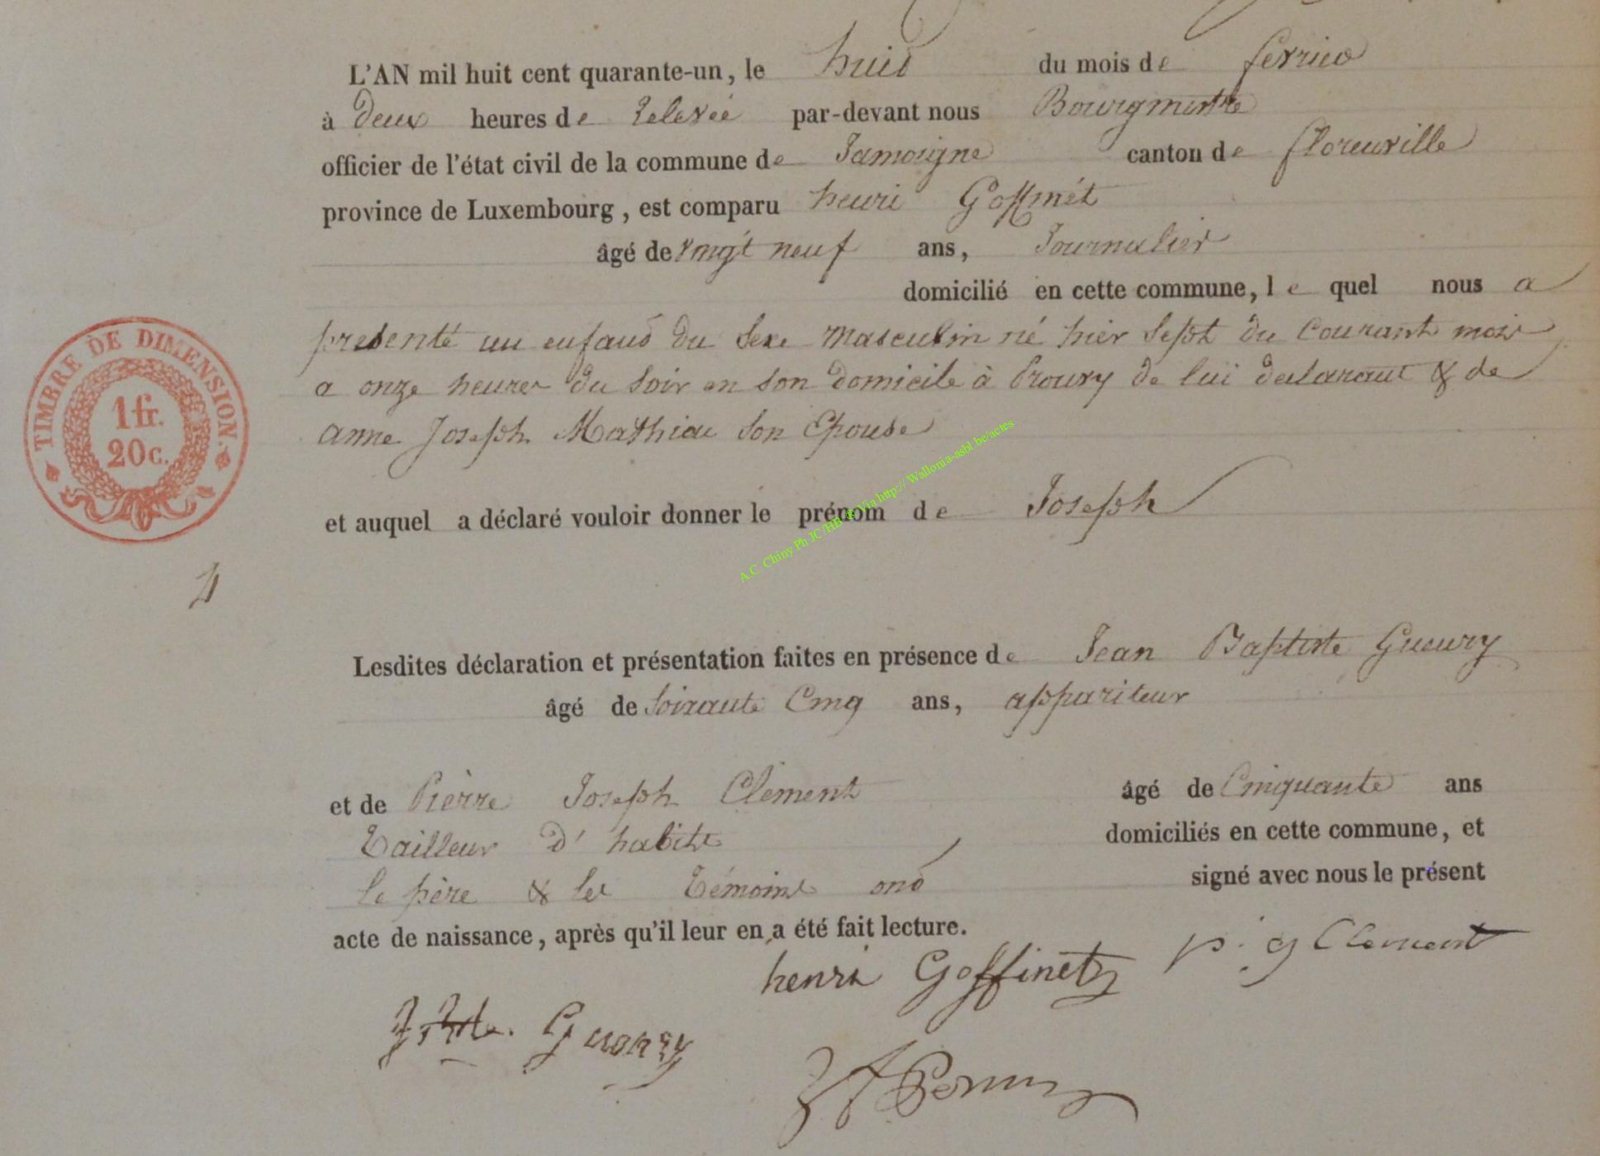 L'AN mil huit cent quarante-un, le huit du mois de fevrier
à deux heures de relevée par-devant nous Bourgmestre
officier de l'état civil de la commune de Jamoigne canton de florenville
province de Luxembourg, est comparu henri Goffinét
âgé de vingt neuf ans, Journalier
domicilié en cette commune, le quel nous a
présenté un enfant du sexe masculin né hier sept du courant mois
a onze heures du soir en son domicile à Prouvy de lui déclarant & de
anne Joseph Mathieu son Epouse
et auquel a déclaré vouloir donner le prénom de Joseph
TIMBRE DE DIMENSION.
1 fr.
20 c.
A.C. Chiny Ph JC Via http:// Wallonia-asbl.be/actes
Lesdites déclaration et présentation faites en présence de Jean Baptiste Gueury
âgé de soixante Cinq ans, appariteur
et de Pierre Joseph Clément âgé de Cinquante ans
Tailleur d'habits domiciliés en cette commune, et
le père & les témoins ont signé avec nous le présent
acte de naissance, après qu'il leur en a été fait lecture.
henri Goffinet p. j Clement